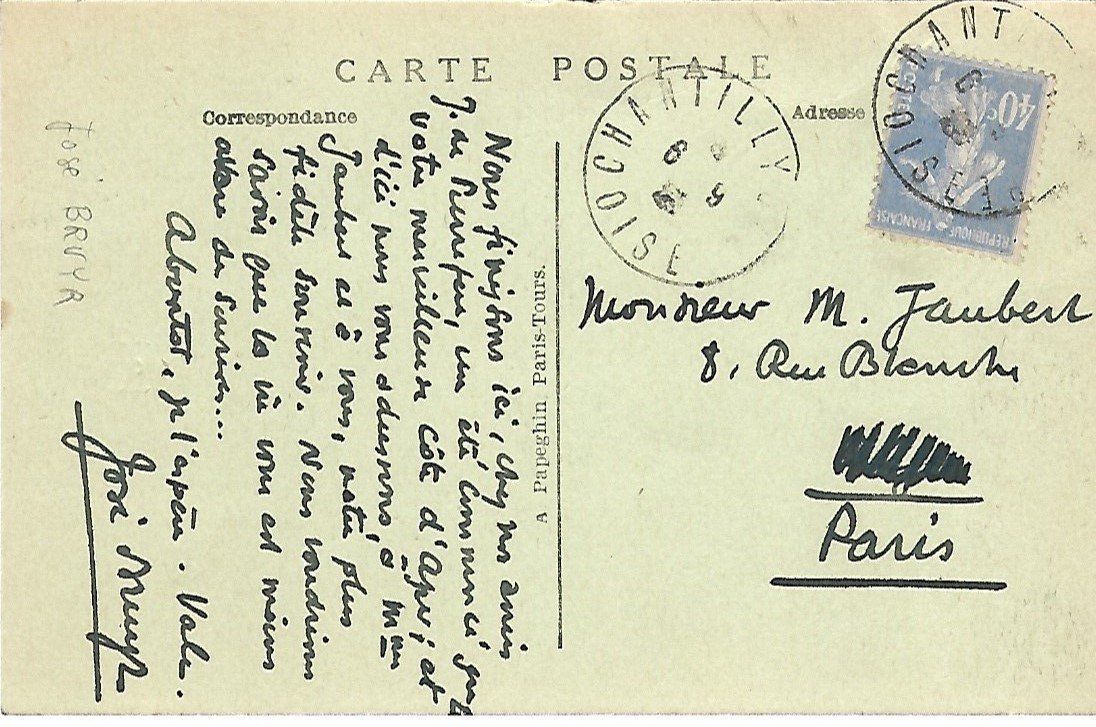 CARTE POSTALE
Correspondance
Adresse
Nous finissons ici, chez nos amis
J. de Pierrefeu, un été commencé sur
votre merveilleuse côte d'Apor; et
d'ici nous vous adressons, à Mme
Jaubert et à vous, notre plus
fidèle souvenir. Nous voudrions
savoir que la vie vous est moins
avare de
A bientôt, je l'espère. Vale.
José Bruyr
José BRUYR
A Papeghin Paris-Tours.
CHANTILLY
OISE
CHANTI
OISE
40c
REPUBLIQUE FRANÇAISE
Monsieur M. Jaubert
8, Rue Blanche
Paris